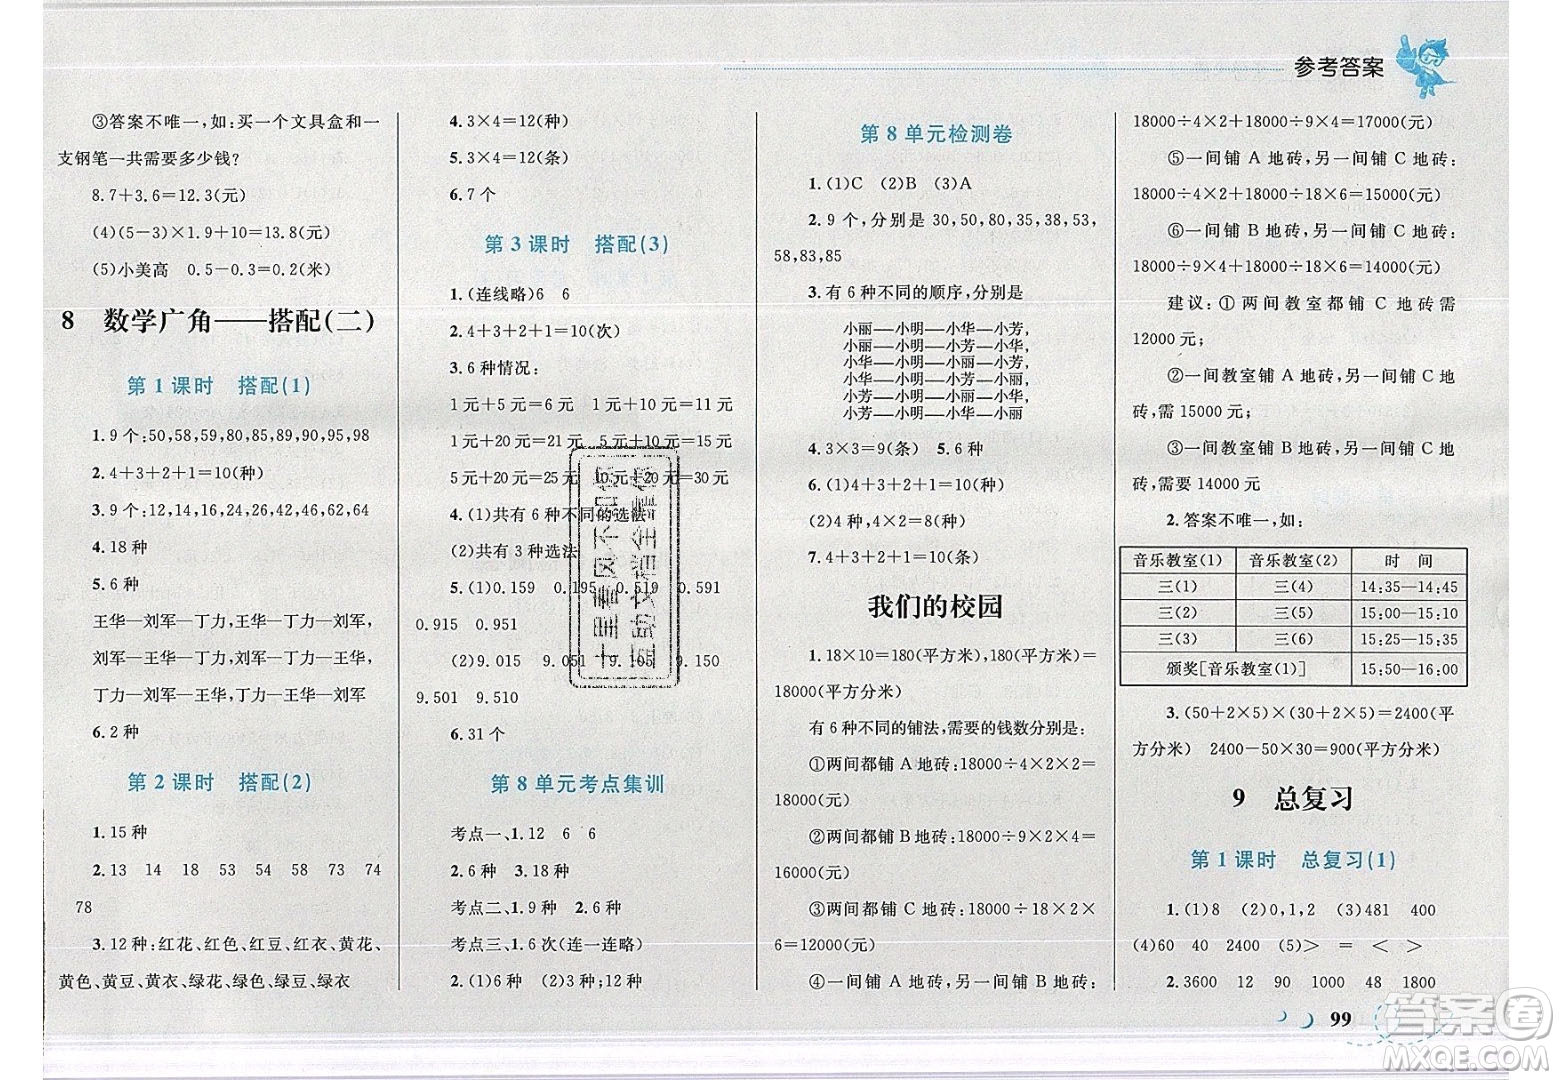 参考答案
③答案不唯一，如：买一个文具盒和一
支钢笔一共需要多少钱？
8.7＋3.6＝12.3(元)
(4)(5－3)×1.9＋10＝13.8(元)
(5)小美高　0.5－0.3＝0.2(米)
8　数学广角——搭配(二)
第 1 课时　搭配(1)
1.9 个：50,58,59,80,85,89,90,95,98
2.4＋3＋2＋1＝10(种)
3.9 个：12,14,16,24,26,42,46,62,64
4.18 种
5.6 种
王华—刘军—丁力，王华—丁力—刘军，
刘军—王华—丁力，刘军—丁力—王华，
丁力—刘军—王华，丁力—王华—刘军
6.2 种
第 2 课时　搭配(2)
1.15 种
2.13　14　18　53　54　58　73　74
78
3.12 种：红花、红色、红豆、红衣、黄花、
黄色、黄豆、黄衣、绿花、绿色、绿豆、绿衣
4.3×4＝12(种)
5.3×4＝12(条)
6.7 个
第 3 课时　搭配(3)
1.(连线略)6　6
2.4＋3＋2＋1＝10(次)
3.6 种情况：
1 元＋5 元＝6 元　1 元＋10 元＝11 元
1 元＋20 元＝21 元　5 元＋10 元＝15 元
5 元＋20 元＝25 元　10 元＋20 元＝30 元
4.(1)共有 6 种不同的选法
(2)共有 3 种选法
5.(1)0.159　0.195　0.519　0.591
0.915　0.951
(2)9.015　9.051　9.105　9.150
9.501　9.510
6.31 个
第 8 单元考点集训
考点一、1.12　6　6
2.6 种　3.18 种
考点二、1.6 种　2.6 种
考点三、1.6 次(连一连略)
2.(1)6 种　(2)6 种　(3)18 种
第 8 单元检测卷
1.(1)C　(2)B　(3)A
2.9 个，分别是 30,50,80,35,38,53,
58,83,85
3.有 6 种不同的顺序，分别是
小丽—小明—小华—小芳，
小丽—小明—小芳—小华，
小华—小明—小丽—小芳，
小华—小明—小芳—小丽，
小芳—小明—小丽—小华，
小芳—小明—小华—小丽
4.3×3＝9(条)　5.6 种
6.(1)4＋3＋2＋1＝10(种)
(2)4 种，4×2＝8(种)
7.4＋3＋2＋1＝10(条)
我们的校园
1.18×10＝180(平方米)，180(平方米)＝
18000(平方分米)
有 6 种不同的铺法，需要的钱数分别是：
①两间都铺 A 地砖：18000÷4×2×2＝
18000(元)
②两间都铺 B 地砖：18000÷9×2×4＝
16000(元)
③两间都铺 C 地砖：18000÷18×2×
6＝12000(元)
④一间铺 A 地砖，另一间铺 B 地砖：
18000÷4×2＋18000÷9×4＝17000(元)
⑤一间铺 A 地砖，另一间铺 C 地砖：
18000÷4×2＋18000÷18×6＝15000(元)
⑥一间铺 B 地砖，另一间铺 C 地砖：
18000÷9×4＋18000÷18×6＝14000(元)
建议：①两间教室都铺 C 地砖需
12000 元；
②一间教室铺 A 地砖，另一间铺 C 地
砖，需 15000 元；
③一间教室铺 B 地砖，另一间铺 C 地
砖，需要 14000 元
2.答案不唯一，如：
音乐教室(1)　音乐教室(2)　时　间
三(1)　三(4)　14:35—14:45
三(2)　三(5)　15:00—15:10
三(3)　三(6)　15:25—15:35
颁奖[音乐教室(1)]　15:50—16:00
3.(50＋2×5)×(30＋2×5)＝2400(平
方分米)　2400－50×30＝900(平方分米)
9　总复习
第 1 课时　总复习(1)
1.(1)8　(2)0,1,2　(3)481　400
(4)60　40　2400　(5)＞　＝　＜　＞
2.3600　12　90　1000　48　1800
99
答案圈
MXQE.COM